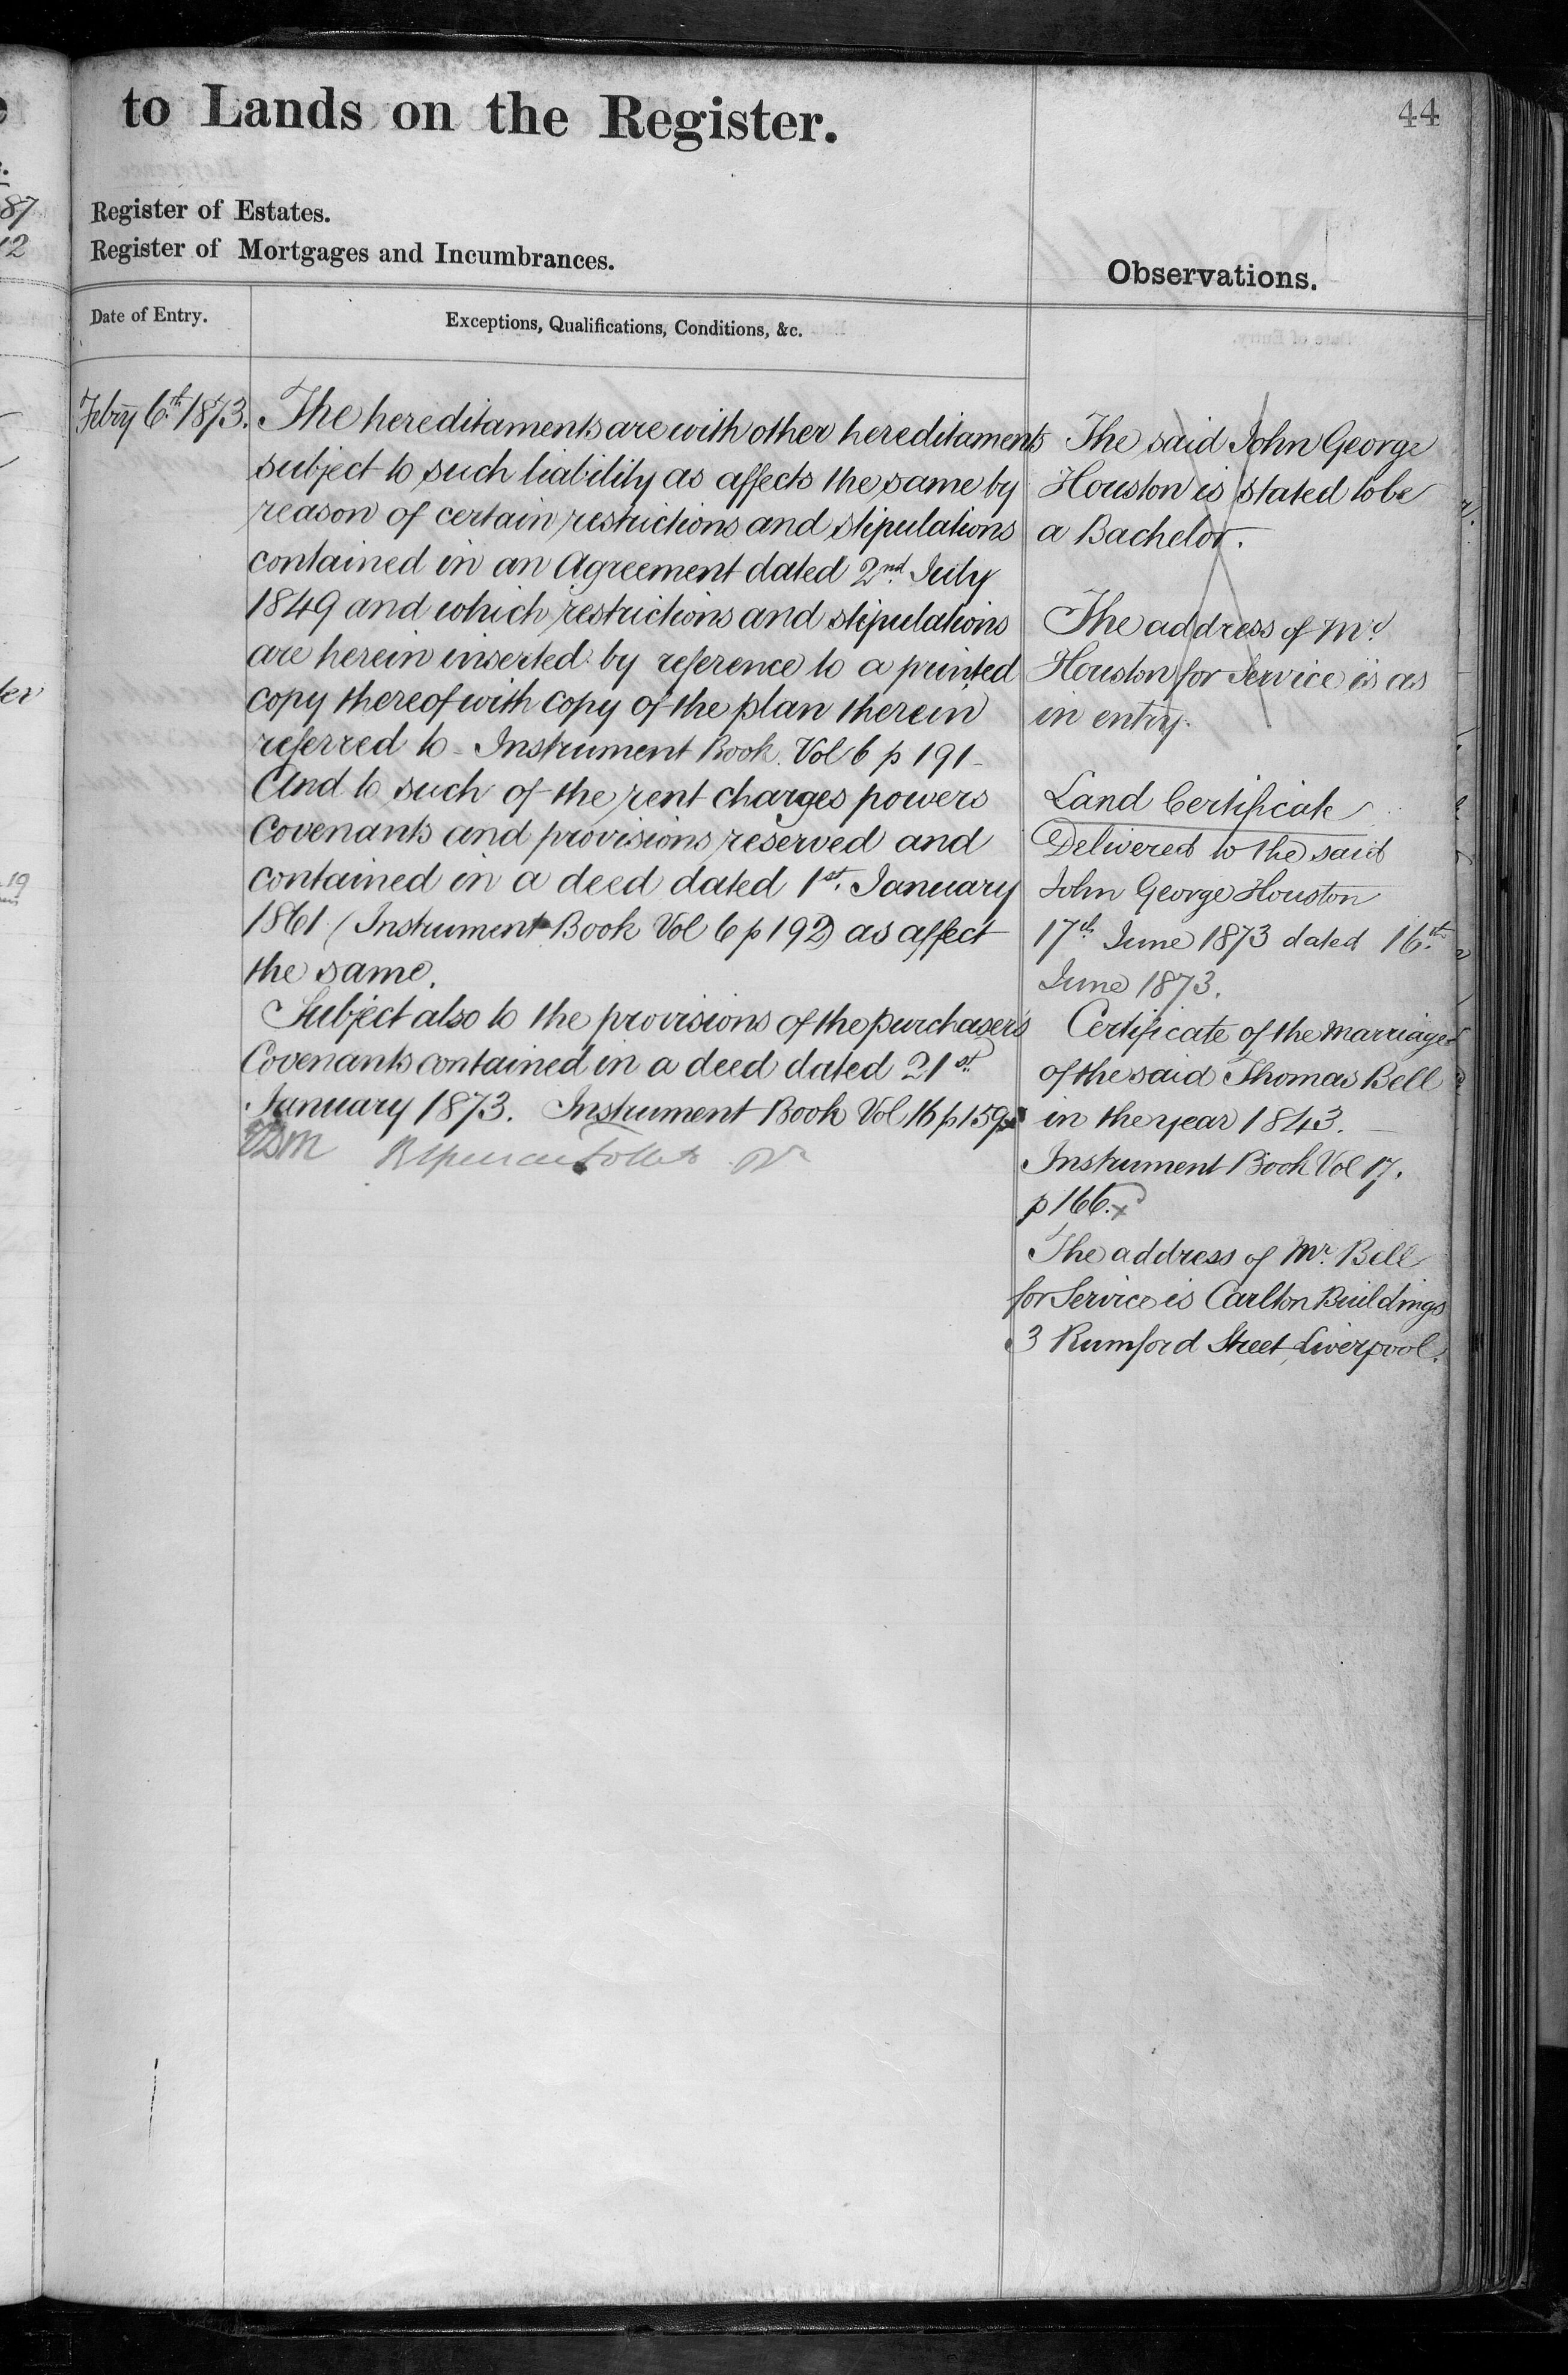 to Lands on the Register.
44
Register of Estates.
Register of Mortgages and Incumbrances.
Observations.
Date of Entry.
Exceptions, Qualifications, Conditions, &c.
Febry 6th 1873.
The hereditaments are with other hereditaments
subject to such liability as affects the same by
reason of certain restrictions and stipulations
contained in an Agreement dated 2nd July
1849 and which restrictions and stipulations
are herein inserted by reference to a printed
copy thereof with copy of the plan therein
referred to - Instrument Book Vol 6 p 191 -
And to such of the rent charges powers
Covenants and provisions reserved and
contained in a deed dated 1st January
1861 (Instrument Book Vol 6 p 192) as affect
the same.
Subject also to the provisions of the purchaser's
Covenants contained in a deed dated 21st
January 1873. Instrument Book Vol 16 p 159
The said John George
Houston is stated to be
a Bachelor.
The address of Mr
Houston for Service is as
in entry.
Land Certificate
Delivered to the said
John George Houston
17th June 1873 dated 16th
June 1873.
Certificate of the marriage
of the said Thomas Bell
in the year 1843.
Instrument Book Vol 17.
p 166. x
The address of Mr. Bell
for Service is Carlton Buildings
3 Rumford Street, Liverpool.
87
12
19